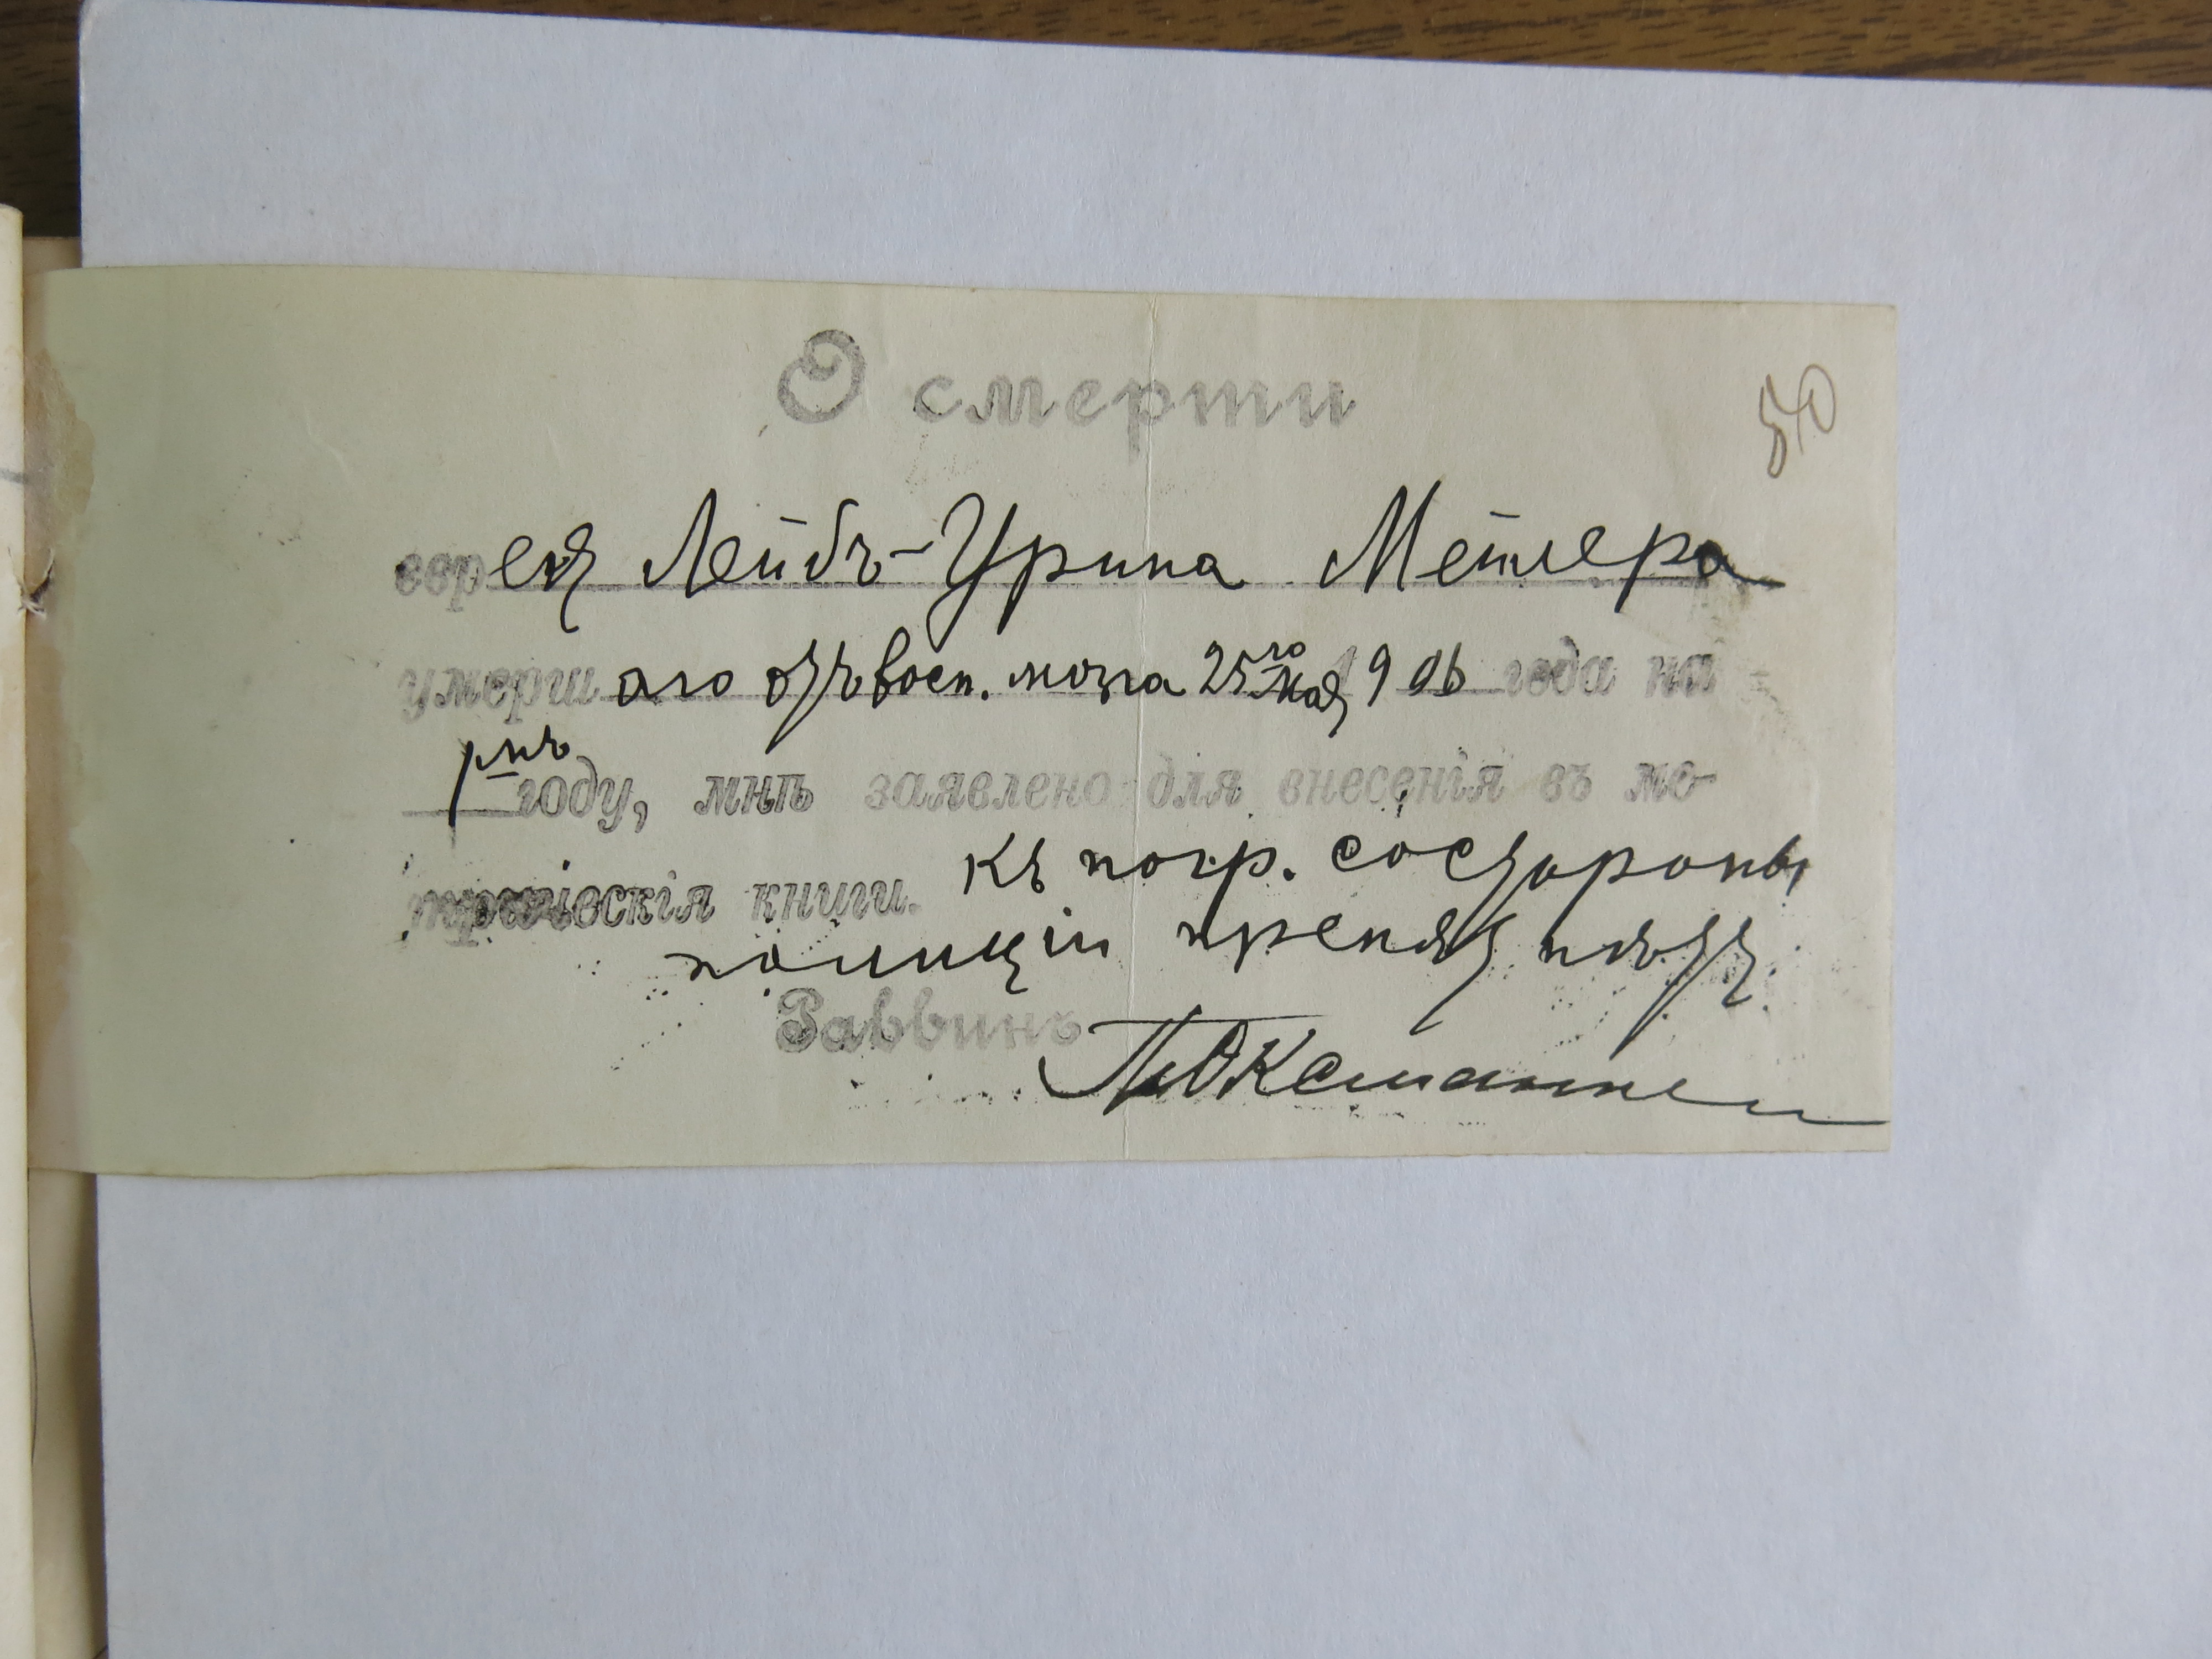 О смерти
50
еврея Лейбъ-Урина Метлера
умершаго отъ восп. мозга 25го мая 1906 года на
году, мнѣ заявлено для внесенія въ ме-
трическія книги. Къ погр. со стороны
полиціи препят. нѣтъ.
Раввинъ